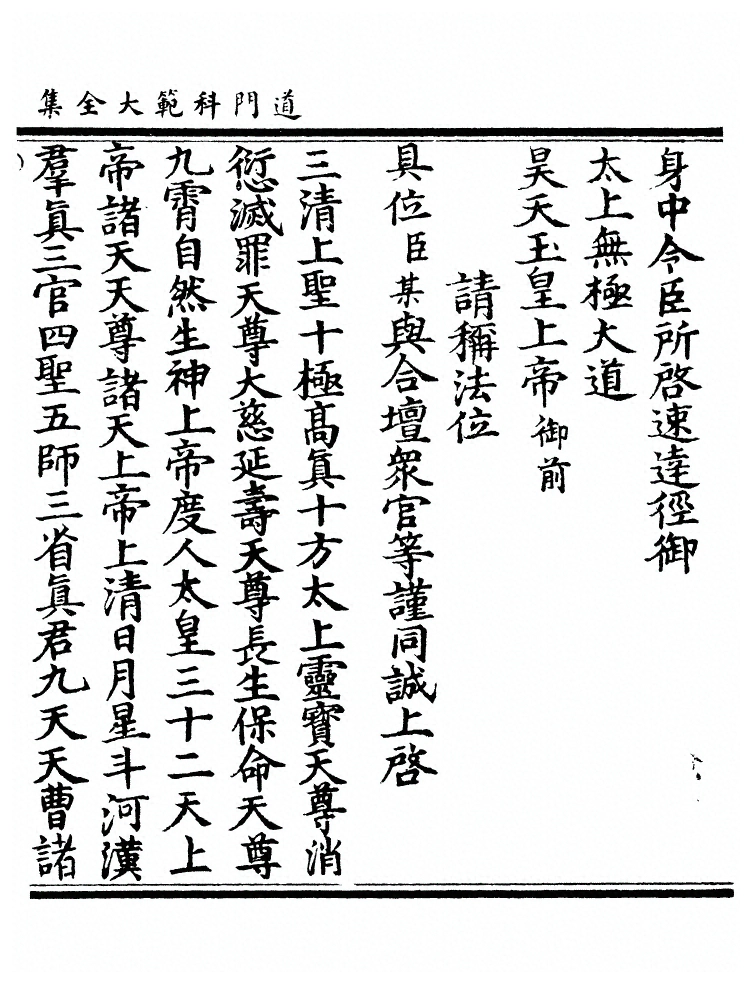 道門科範大全集
身中令臣所啓速達徑御
太上無極大道
昊天玉皇上帝御前
請稱法位
具位臣某與合壇衆官等謹同誠上啓
三清上聖十極高眞十方太上靈寳天尊消
愆滅罪天尊大慈延壽天尊長生保命天尊
九霄自然生神上帝度人太皇三十二天上
帝諸天天尊諸天上帝上清日月星斗河漢
羣眞三官四聖五師三省眞君九天天曹諸